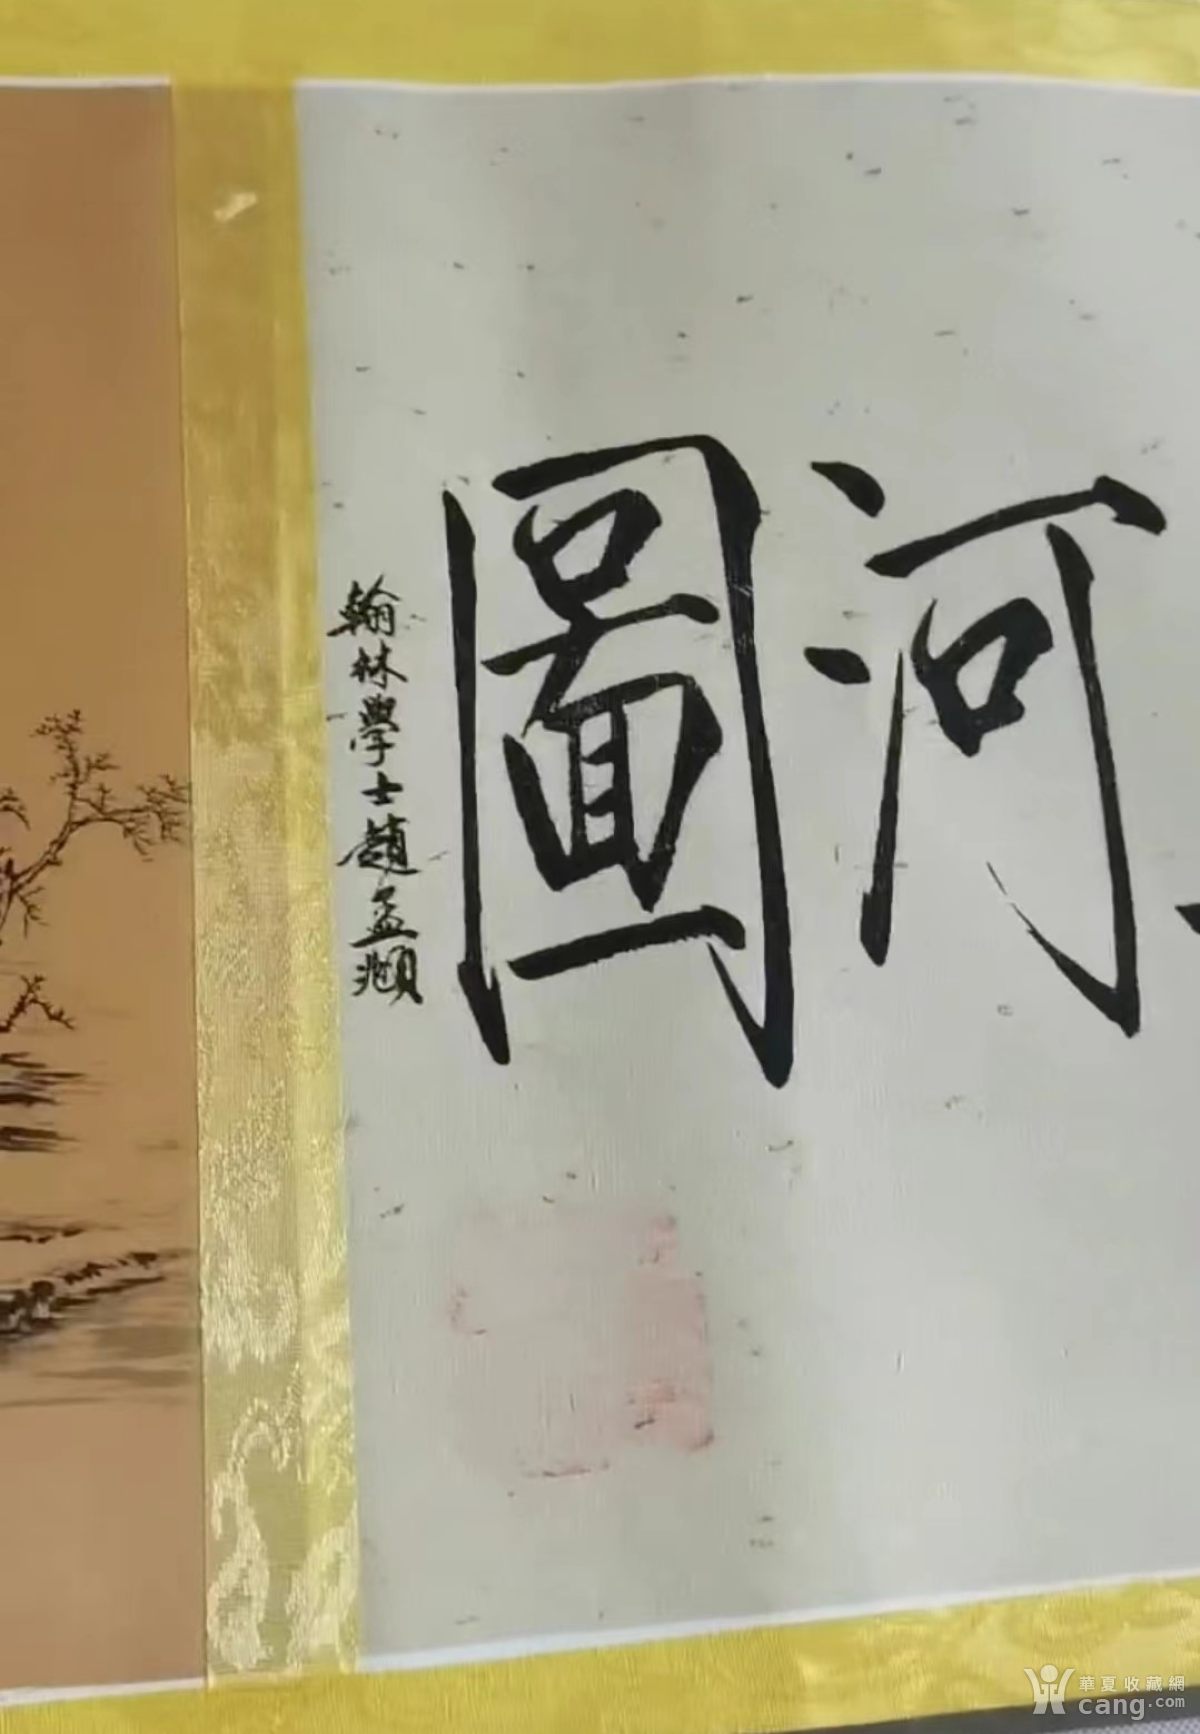 河圖
翰林學士趙孟頫
華夏收藏網
cang.com